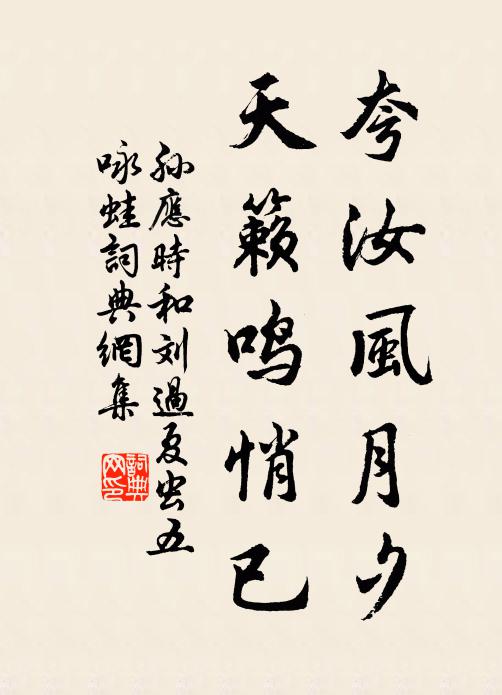 夸汝風月夕
天籟鳴悄已
孙應時和刘過夏虫五
咏蛙詞典網集
詞典
网印